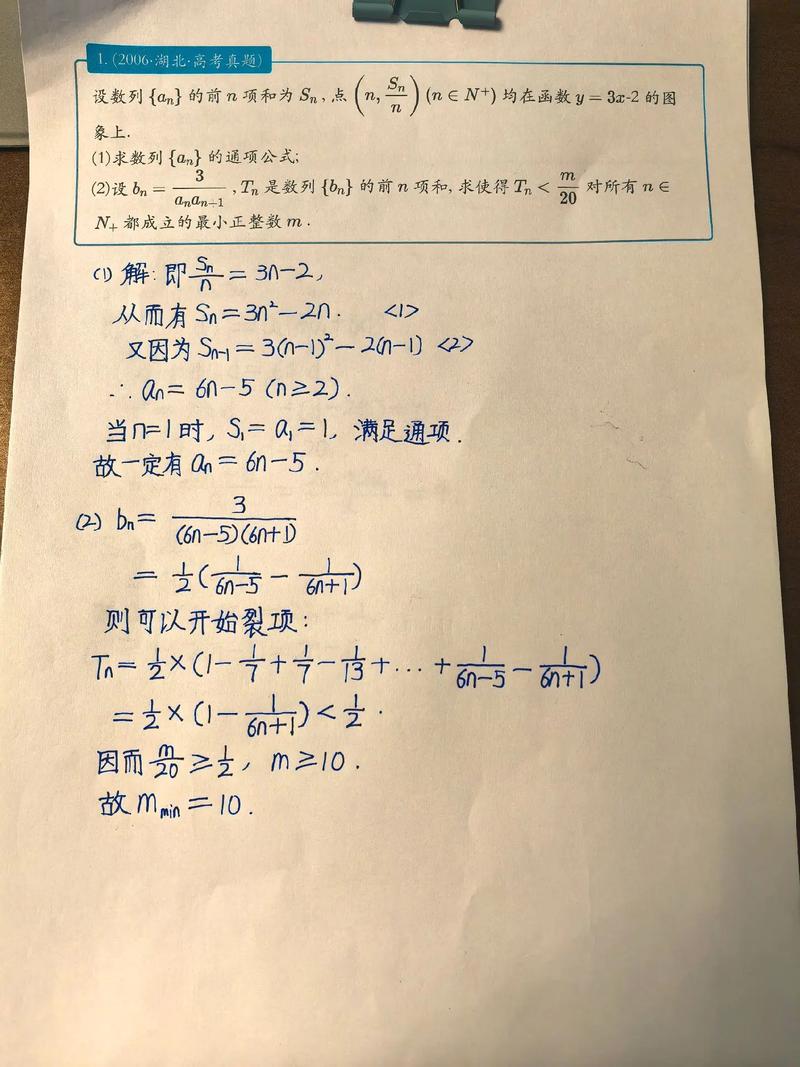 1.(2006·湖北·高考真题)
设数列 {aₙ} 的前 n 项和为 Sₙ , 点 (n, Sₙ/n) (n ∈ N⁺) 均在函数 y = 3x-2 的图
象上.
(1)求数列 {aₙ} 的通项公式;
(2)设 bₙ = 3/(aₙaₙ₊₁) , Tₙ 是数列 {bₙ} 的前 n 项和, 求使得 Tₙ < m/20 对所有 n ∈
N₊ 都成立的最小正整数 m .
(1) 解: 即 Sₙ/n = 3n-2,
从而有 Sₙ = 3n² - 2n. <1>
又因为 Sₙ₋₁ = 3(n-1)² - 2(n-1) <2>
∴ aₙ = 6n-5 (n≥2).
当n=1时, S₁ = a₁ = 1, 满足通项.
故一定有 aₙ = 6n-5.
(2) bₙ = 3/((6n-5)(6n+1))
= 1/2(1/(6n-5) - 1/(6n+1))
则可以开始裂项:
Tₙ = 1/2×(1 - 1/7 + 1/7 - 1/13 + ... + 1/(6n-5) - 1/(6n+1))
= 1/2×(1 - 1/(6n+1)) < 1/2.
因而 m/20 ≥ 1/2, m≥10.
故 m_min = 10.